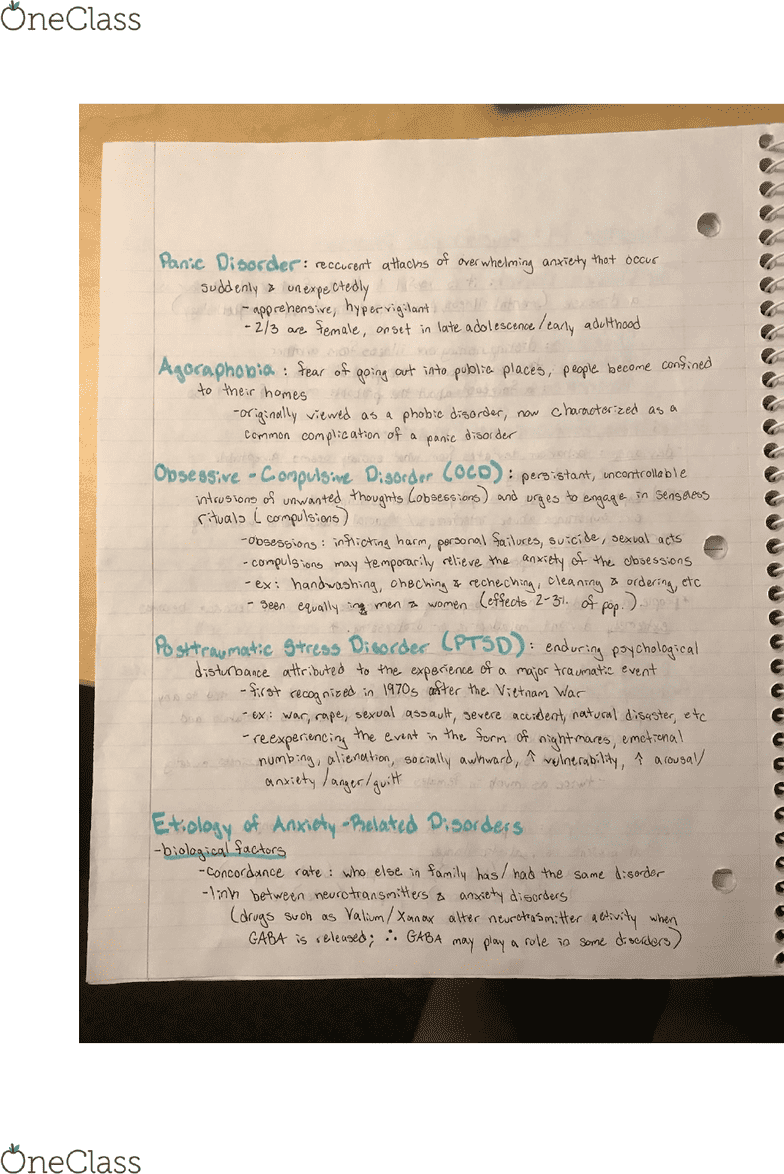 OneClass
Panic Disorder: reccurent attacks of overwhelming anxiety that occur
suddenly & unexpectedly
- apprehensive, hypervigilant
- 2/3 are female, onset in late adolescence/early adulthood
Agoraphobia: fear of going out into public places, people become confined
to their homes
- originally viewed as a phobic disorder, now characterized as a
common complication of a panic disorder
Obsessive-Compulsive Disorder (OCD): persistant, uncontrollable
intrusions of unwanted thoughts (obsessions) and urges to engage in senseless
rituals (compulsions)
- obsessions: inflicting harm, personal failures, suicide, sexual acts
- compulsions may temporarily relieve the anxiety of the obsessions
- ex: handwashing, checking & rechecking, cleaning & ordering, etc
- seen equally in men & women (effects 2-3% of pop.)
Posttraumatic Stress Disorder (PTSD): enduring psychological
disturbance attributed to the experience of a major traumatic event
- first recognized in 1970s after the Vietnam War
- ex: war, rape, sexual assault, severe accident, natural disaster, etc
- reexperiencing the event in the form of nightmares, emotional
numbing, alienation, socially awkward, ↑ vulnerability, ↑ arousal/
anxiety/anger/guilt
Etiology of Anxiety-Related Disorders
- biological factors
- concordance rate: who else in family has/had the same disorder
- link between neurotransmitters & anxiety disorders
(drugs such as Valium/Xanax alter neurotrasmitter activity when
GABA is released; ∴ GABA may play a role in some disorders)
OneClass